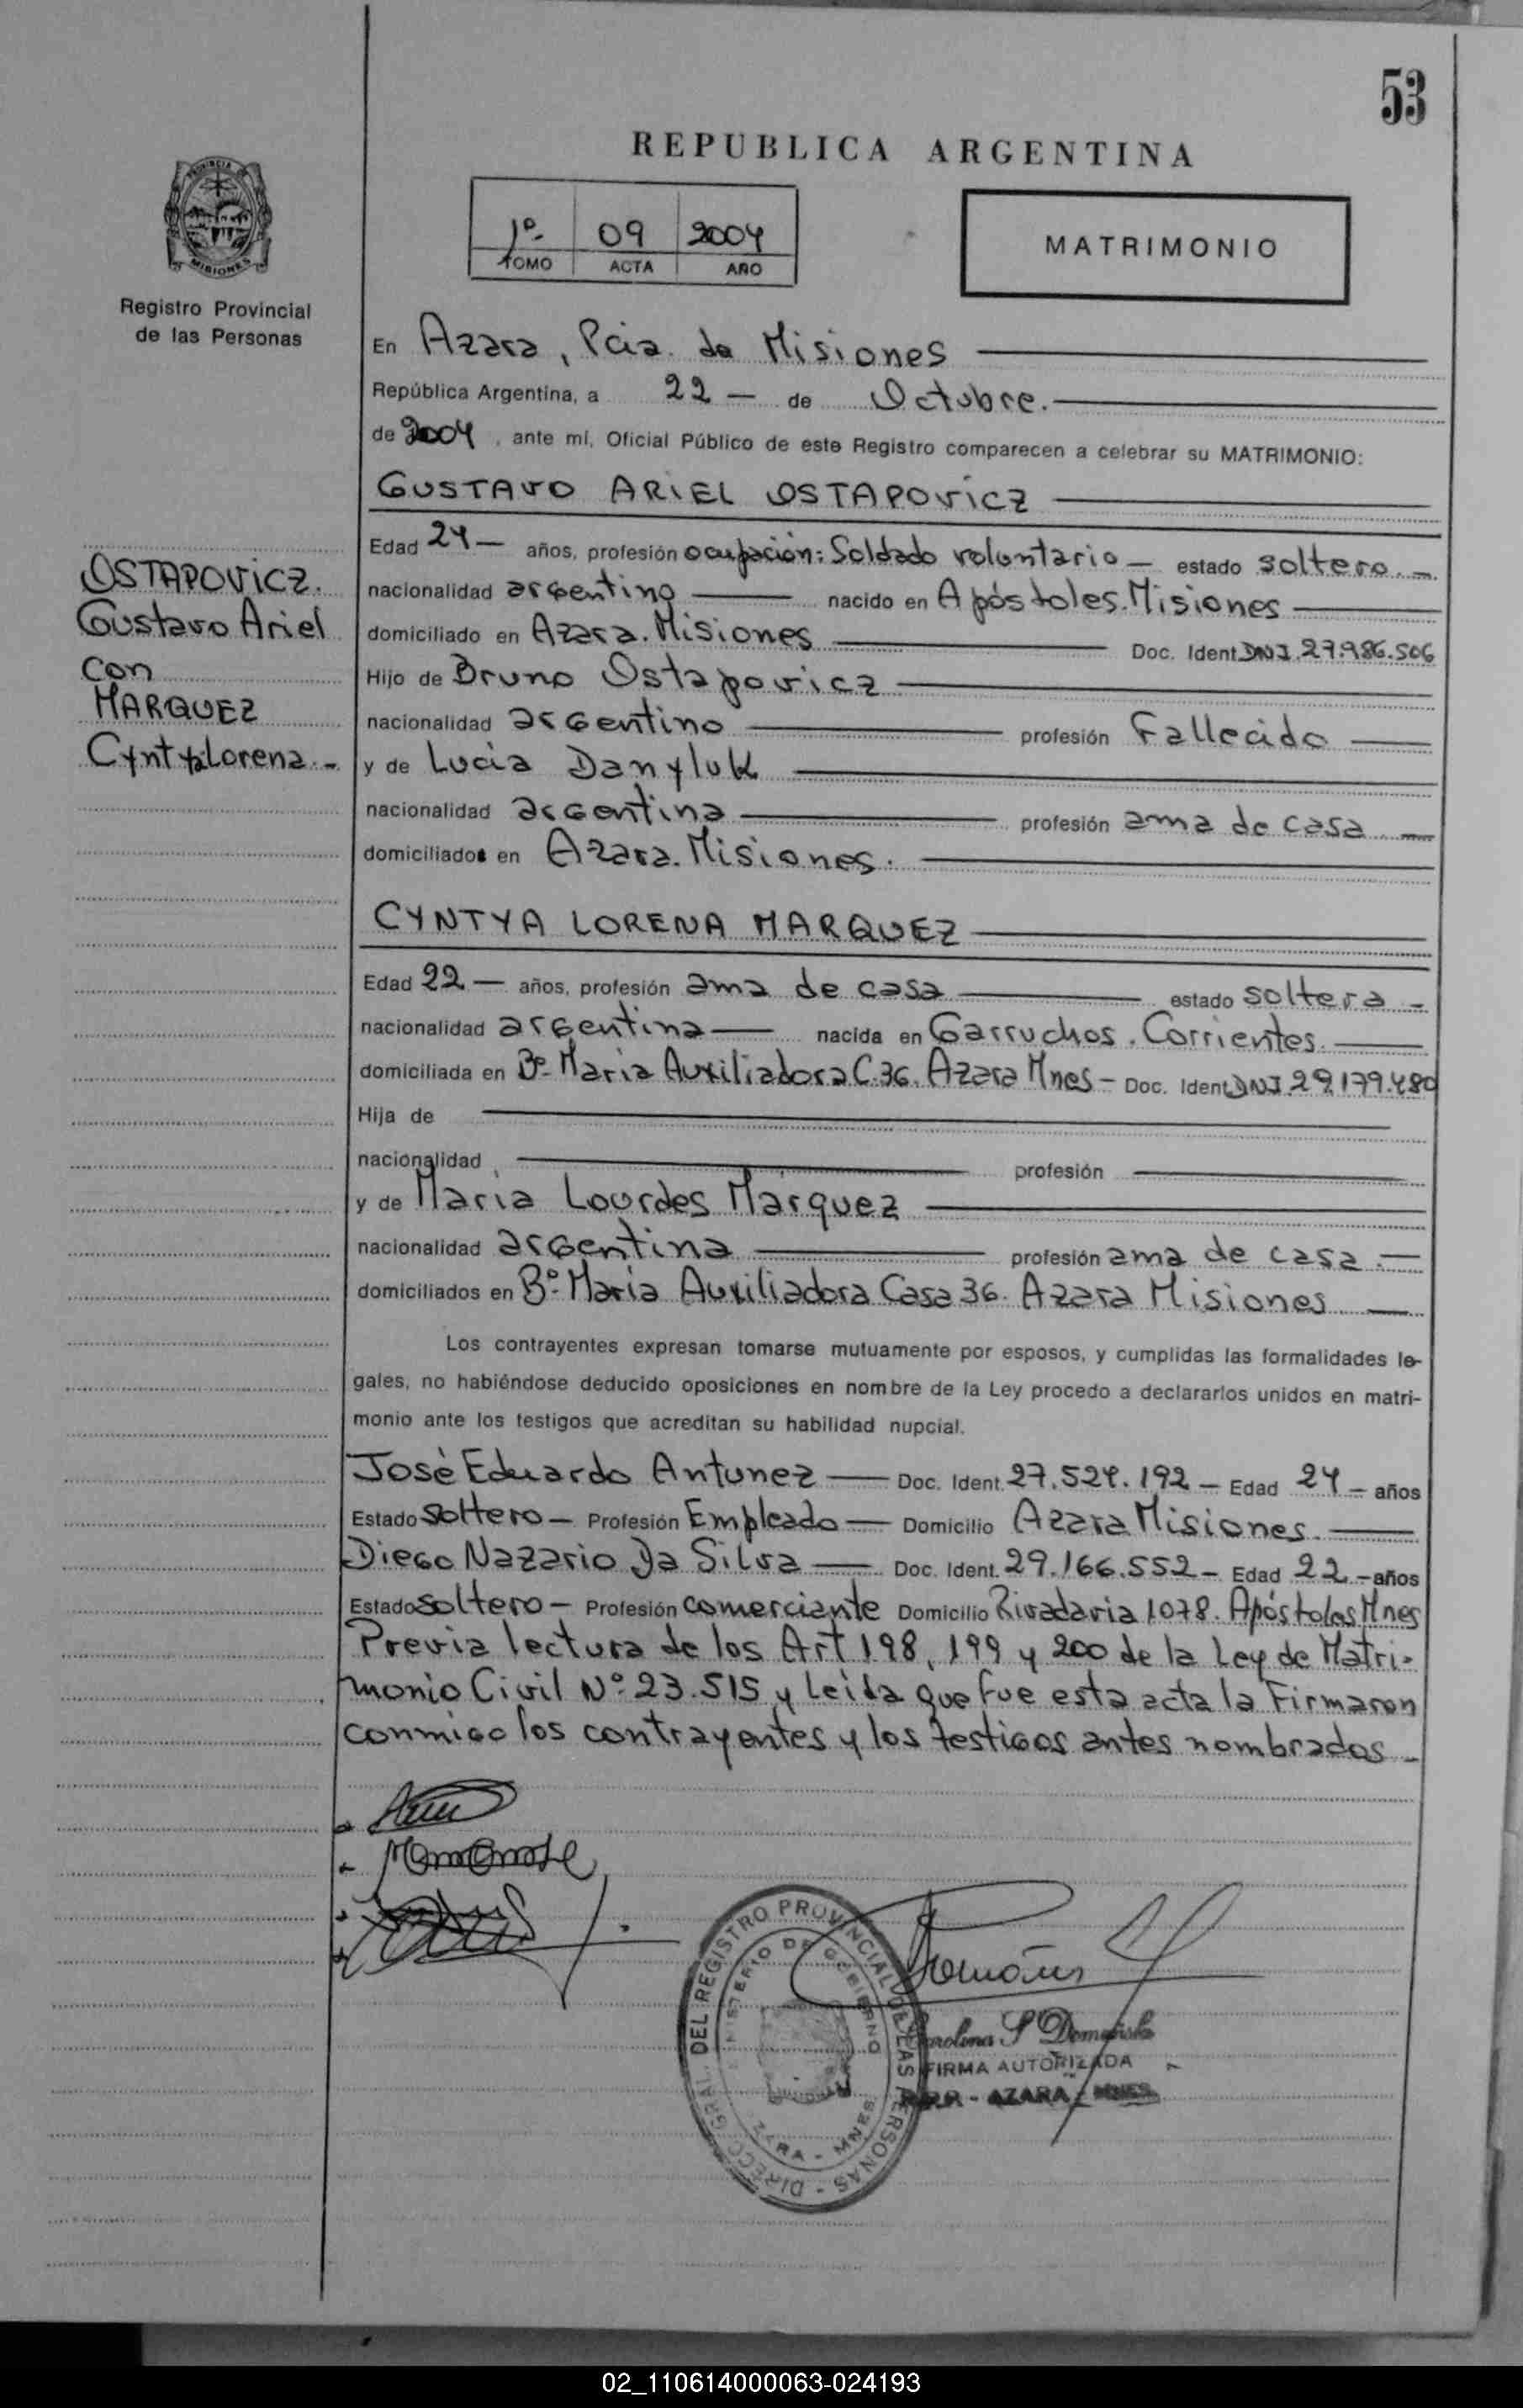 53
REPUBLICA ARGENTINA
PROVINCIA DE
MISIONES
Registro Provincial
de las Personas
1º- 09 2004
TOMO ACTA AÑO
MATRIMONIO
En Azara, Pcia. de Misiones
República Argentina, a 22 — de Octubre.
de 2004, ante mí, Oficial Público de este Registro comparecen a celebrar su MATRIMONIO:
GUSTAVO ARIEL OSTAPOVICZ
Edad 24 — años, profesión ocupación: Soldado voluntario — estado soltero. —
nacionalidad argentino nacido en Apóstoles. Misiones
domiciliado en Azara. Misiones Doc. Ident. DNI. 27.986.506
Hijo de Bruno Ostapovicz
nacionalidad argentino profesión Fallecido
y de Lucia Danyluk
nacionalidad argentina profesión ama de casa
domiciliados en Azara. Misiones.
OSTAPOVICZ.
Gustavo Ariel
con
MARQUEZ
Cyntya Lorena. -
CYNTYA LORENA MARQUEZ
Edad 22 — años, profesión ama de casa estado soltera -
nacionalidad argentina nacida en Garruchos. Corrientes.
domiciliada en Bº- Maria Auxiliadora C.36. Azara Mnes - Doc. Ident. DNI. 29.179.480
Hija de
nacionalidad profesión
y de Maria Lourdes Marquez
nacionalidad argentina profesión ama de casa. —
domiciliados en Bº- Maria Auxiliadora Casa 36. Azara Misiones
Los contrayentes expresan tomarse mutuamente por esposos, y cumplidas las formalidades le-
gales, no habiéndose deducido oposiciones en nombre de la Ley procedo a declararlos unidos en matri-
monio ante los testigos que acreditan su habilidad nupcial.
Josè Eduardo Antunez — Doc. Ident. 27.524.192 — Edad 24 — años
Estado soltero — Profesión Empleado — Domicilio Azara Misiones.
Diego Nazario Da Silva — Doc. Ident. 29.166.552 — Edad 22 — años
Estado soltero — Profesión comerciante Domicilio Rivadavia 1078. Apóstoles Mnes
Previa lectura de los Art 198, 199 y 200 de la Ley de Matri-
monio Civil Nº 23.515 y leida que fue esta acta la Firmaron
conmigo los contrayentes y los testigos antes nombrados -
DIRECC. GRAL. DEL REGISTRO PROVINCIAL DE LAS PERSONAS
MINISTERIO DE GOBIERNO
AZARA - MNES
Carolina S Domański
FIRMA AUTORIZADA
AZARA - MNES
02_110614000063-024193